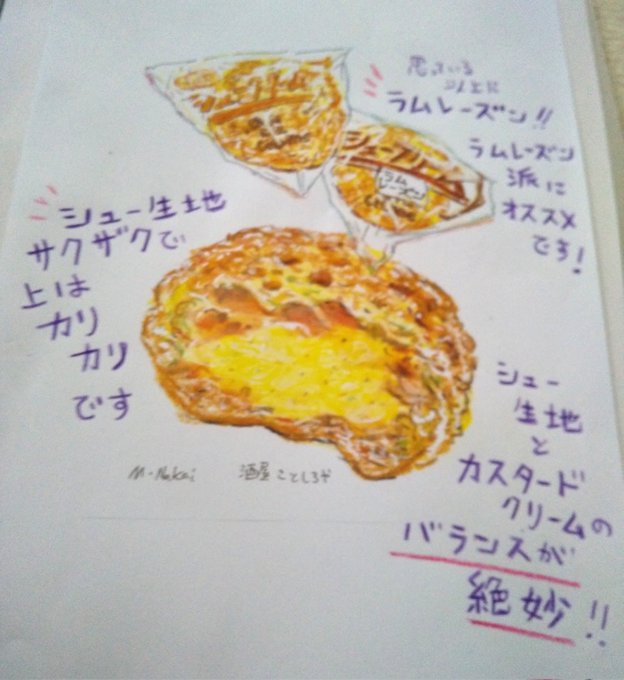 シュークリーム
思っている
以上に
ラムレーズン!!
シュークリーム
ラム
レーズン
ラムレーズン
派に
オススメ
です!
シュー生地
サクザクで
上は
カリ
カリ
です
シュー
生地
と
カスタード
クリームの
バランスが
絶妙!!
M-Nakai
酒屋 ことしろや